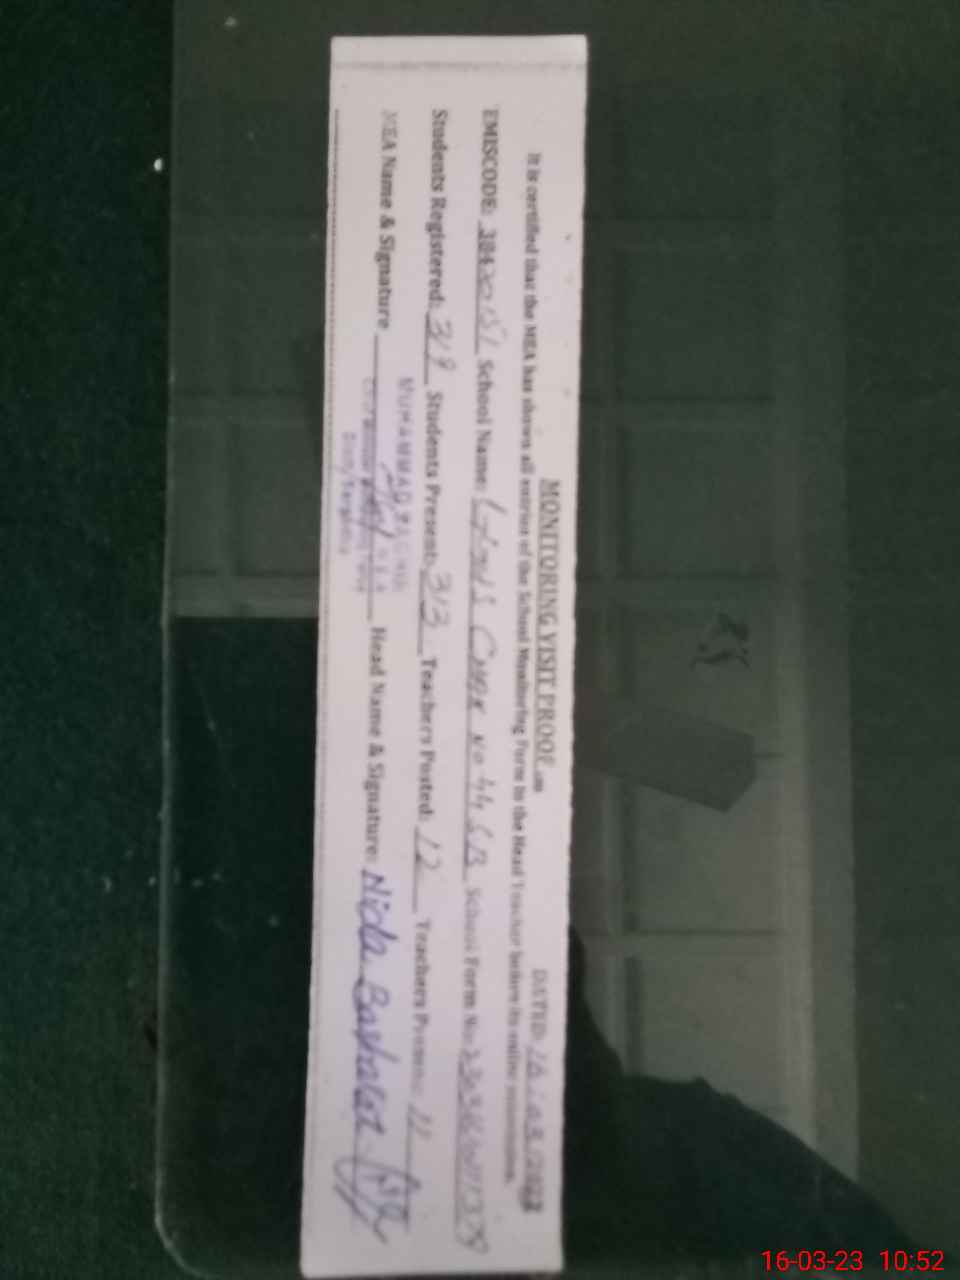 MONITORING VISIT PROOF on DATED: 16.03.2023
It is certified that the MEA has shown all entries of the School Monitoring Form to the Head Teacher before its online submission.
EMISCODE: 38420151 School Name: CHAK No 44 SB School Form No:
Students Registered: 319 Students Present: 313 Teachers Posted: 12 Teachers Present: 11
MEA Name & Signature Head Name & Signature: Nida Basharat
MUHAMMAD
16-03-23 10:52